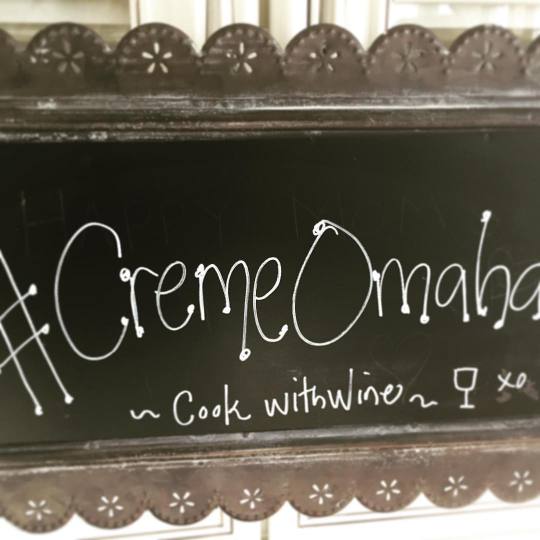 #CremeOmaha
~ Cook withWine ~ xo